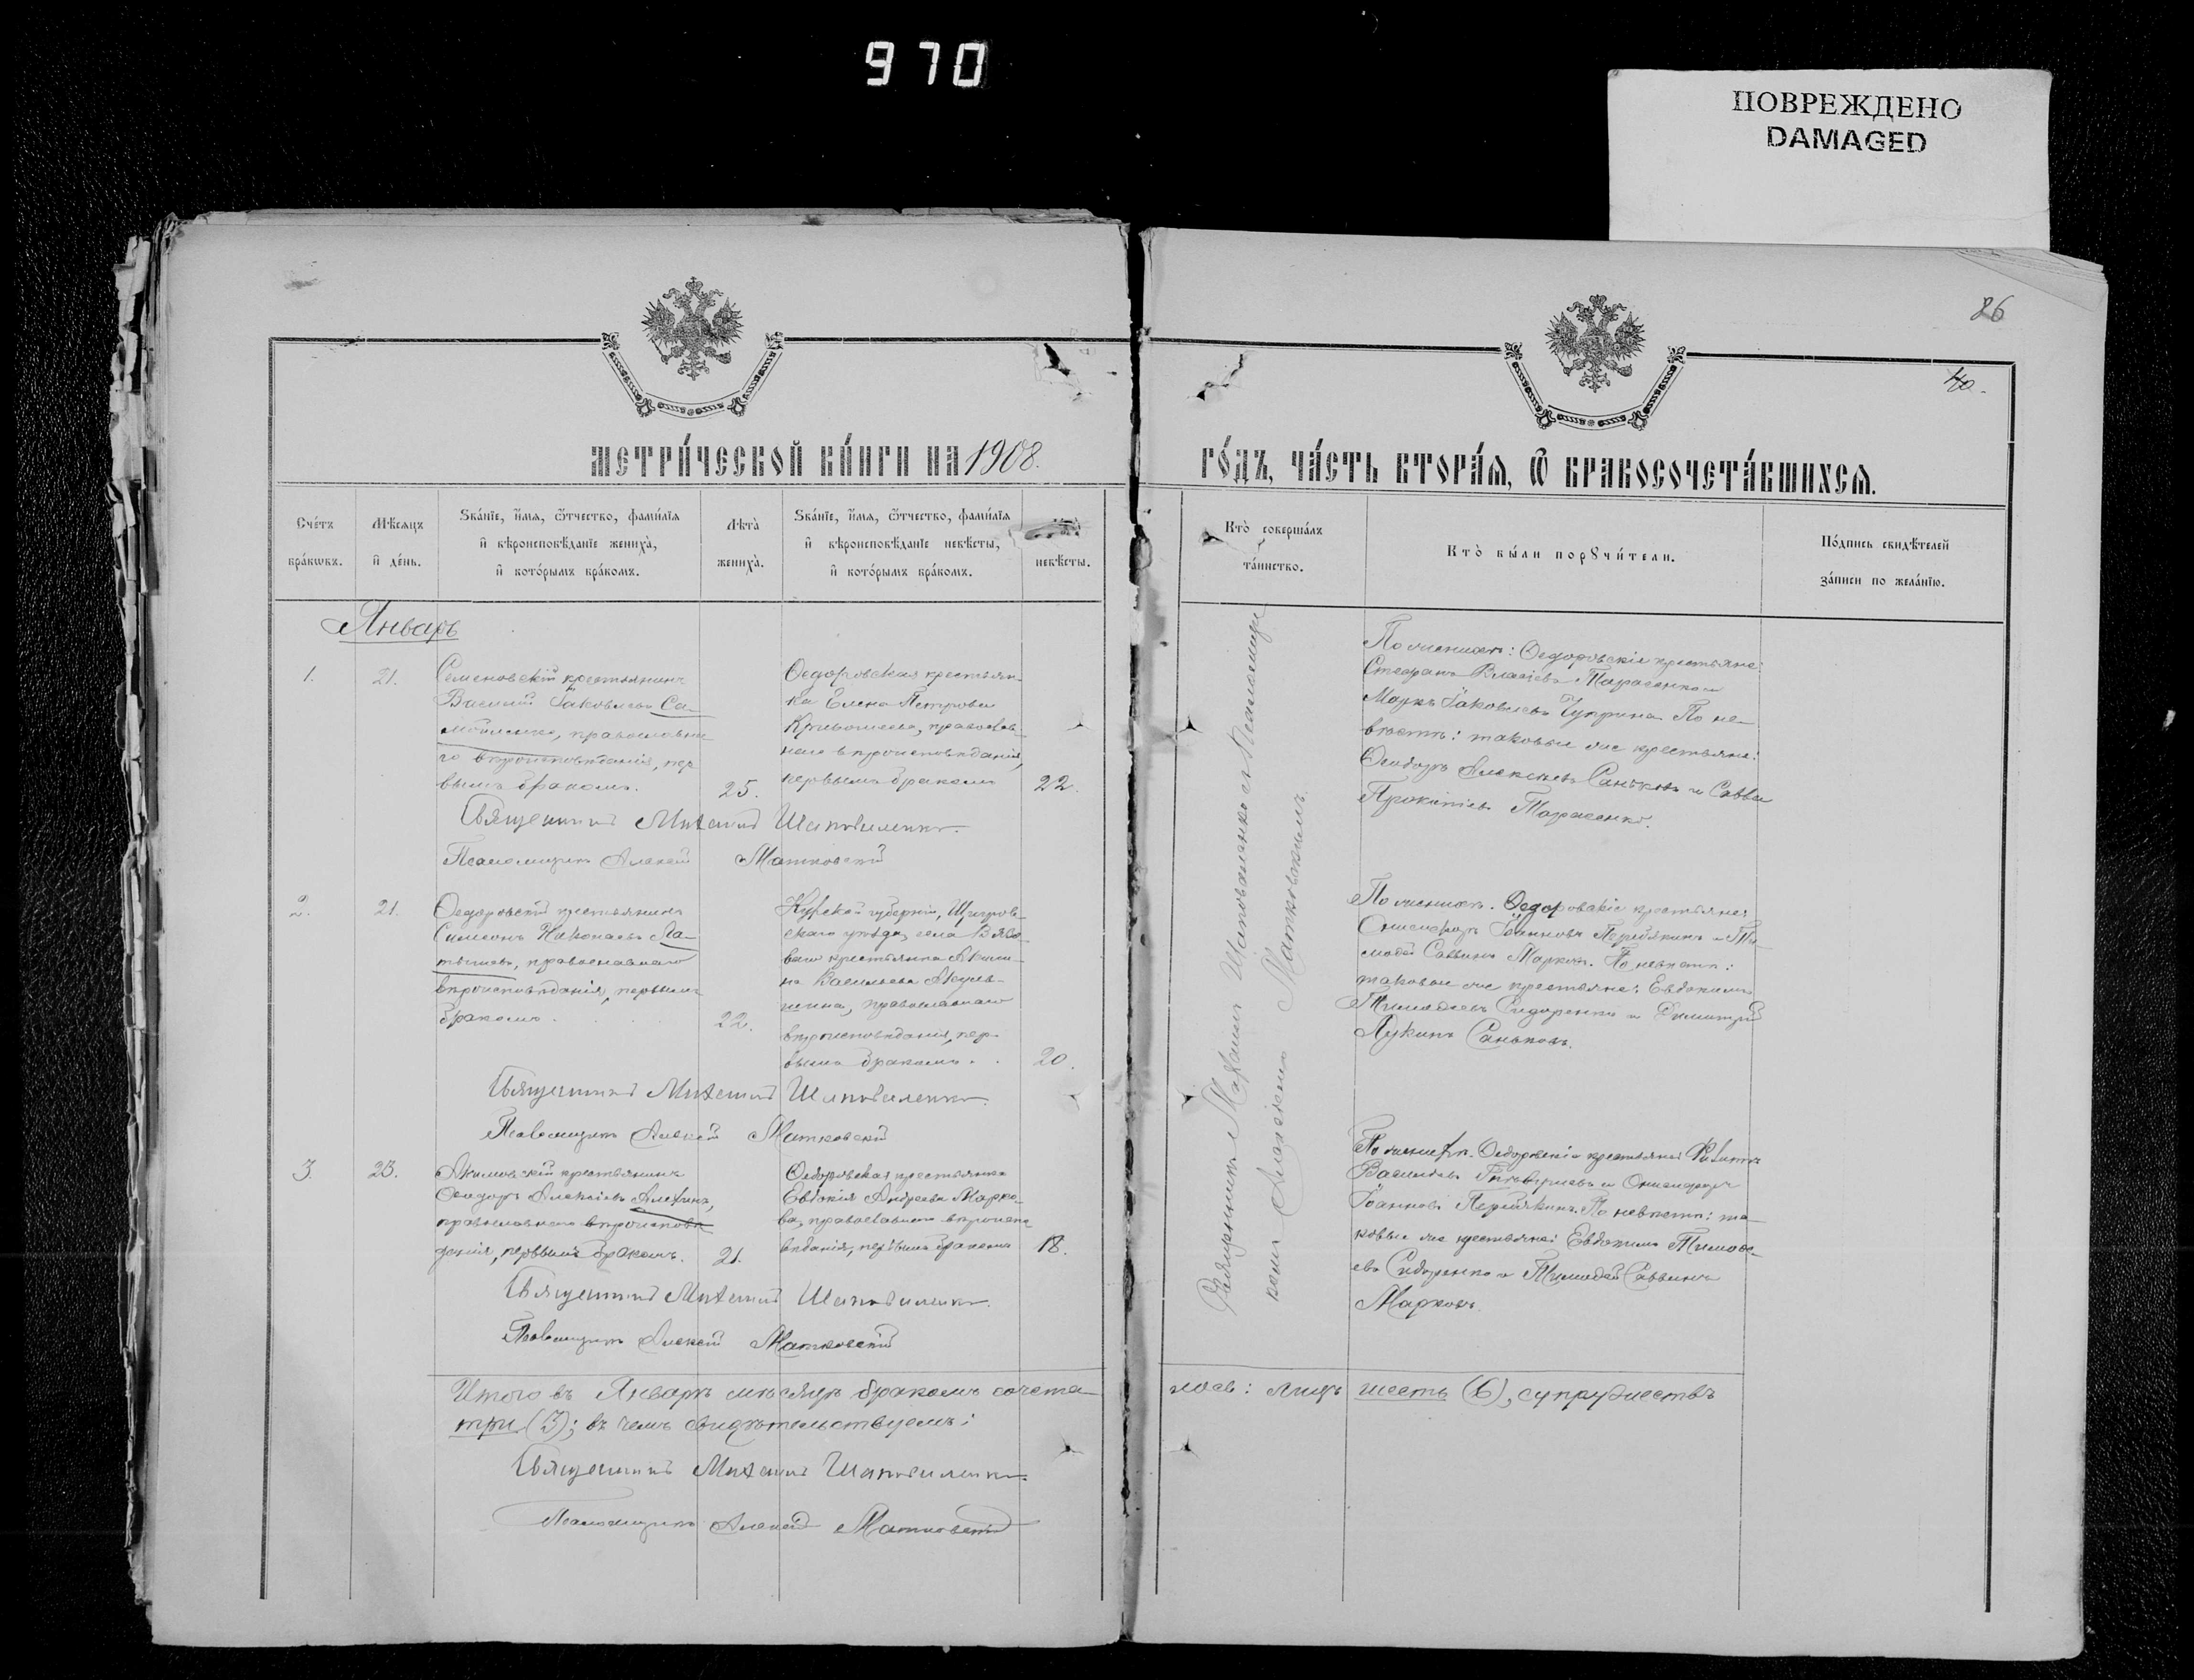 970
ПОВРЕЖДЕНО
DAMAGED
86
40.
МЕТРИ́ЧЕСКОЙ КНИ́ГИ НА 1908.
ГО́ДЪ, ЧА́СТЬ ВТОРА́Я, Ѿ БРАКОСОЧЕТА́ВШИХСЯ.
Сче́тъ
бра́кѡвъ.
Мѣ́сяцъ
и҆ де́нь.
Зва́нїе, и҆́мя, ѻ҆́тчество, фами́лїя
и҆ вѣроисповѣ́данїе жениха̀,
и҆ кото́рымъ бра́комъ.
Лѣ́та
жениха̀.
Зва́нїе, и҆́мя, ѻ҆́тчество, фами́лїя
и҆ вѣроисповѣ́данїе невѣ́сты,
и҆ кото́рымъ бра́комъ.
невѣ́сты.
Кто̀ соверша́лъ
та́инство.
Кто̀ бы́ли порꙋчи́тели.
По́дпись свидѣ́телей
за́писи по жела́нїю.
Январь
1.
21.
Семеновскій крестьянинъ
Василій Іаковлевъ Са-
мойленко, православна
го вѣроисповѣданія, пер
вымъ бракомъ.
25.
Ѳедоровская крестьян-
ка Елена Петрова
православ-
наго вѣроисповѣданія,
первымъ бракомъ
22.
Священникъ Михаилъ Шаповаленко.
Псаломщикъ Алексій Матковскій
По женихѣ: Ѳедоровскіе крестьяне:
Стефанъ Власіевъ Тарасенко и
Маркъ Іаковлевъ Чуприна. По не-
вѣстѣ: таковые же крестьяне:
Ѳеодоръ Алексѣевъ Саньковъ и Савва
Прокопіевъ Тарасенко.
2.
21.
Ѳедоровскій крестьянинъ
Симеонъ Николаевъ Ла-
тышевъ, православнаго
вѣроисповѣданія, первымъ
бракомъ.
22.
Курской губерніи, Щигров-
скаго уѣзда, села Вязо-
ваго крестьянка Акили-
на Васильева
православнаго
вѣроисповѣданія, пер-
вымъ бракомъ.
20.
Священникъ Михаилъ Шаповаленко.
Псаломщикъ Алексій Матковскій
По женихѣ. Ѳедоровскіе крестьяне:
Онисифоръ Іоанновъ Перепякинъ и Ти-
моѳей Саввинъ Марковъ. По невѣстѣ:
таковые же крестьяне: Евдокимъ
Тимоѳеевъ Сидоренко и Димитрій
Лукинъ Саньковъ.
3.
23.
Акимовскій крестьянинъ
Ѳеодоръ Алексіевъ Алехинъ,
православнаго вѣроисповѣ
данія, первымъ бракомъ.
21.
Ѳедоровская крестьянка
Евдокія Андреева Марко-
ва, православнаго вѣроиспо
вѣданія, первымъ бракомъ
18.
Священникъ Михаилъ Шаповаленко.
Псаломщикъ Алексій Матковскій
По женихѣ. Ѳедоровскіе крестьяне: Филиппъ
Васильевъ и Онисифоръ
Іоанновъ Перепякинъ. По невѣстѣ: та-
ковые же крестьяне: Евдокимъ Тимоѳе-
евъ Сидоренко и Тимоѳей Саввинъ
Марковъ.
Священникъ Михаилъ Шаповаленко съ Псаломщи
комъ Алексіемъ Матковскимъ.
Итого въ Январѣ мѣсяцѣ бракомъ сочета-
лось: лицъ шесть (6), супружествъ
три (3); въ чемъ свидѣтельствуемъ:
Священникъ Михаилъ Шаповаленко.
Псаломщикъ Алексій Матковскій